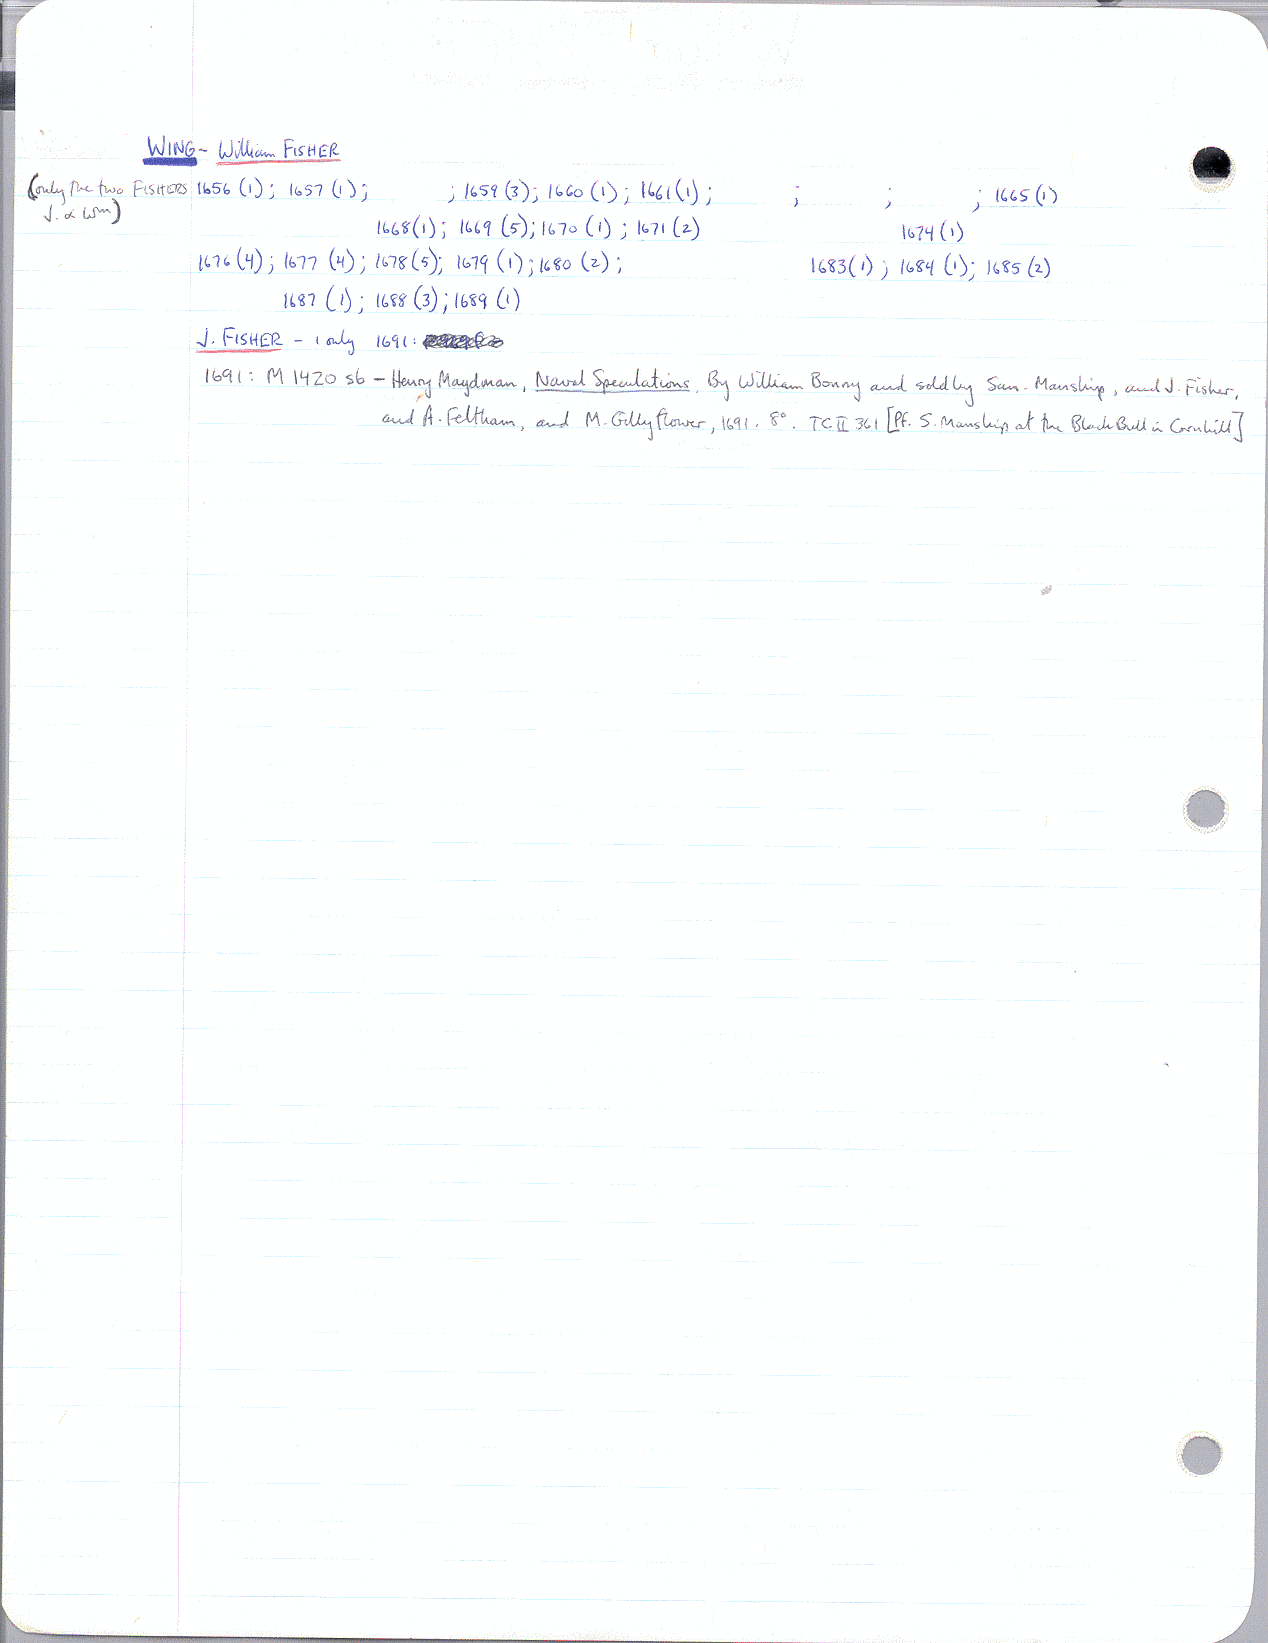 WING - William FISHER
(only the two FISHERS 1656 (1); 1657 (1); ; 1659 (3); 1660 (1); 1661 (1); ; ; ; 1665 (1)
J. & Wm)
1668 (1); 1669 (5); 1670 (1); 1671 (2) 1674 (1)
1676 (4); 1677 (4); 1678 (5); 1679 (1); 1680 (2); 1683 (1); 1684 (1); 1685 (2)
1687 (1); 1688 (3); 1689 (1)
J. FISHER - 1 only 1691:
1691: M 1420 sb - Henry Maydman, Naval Speculations. By William Bonny and sold by Sam. Manship, and J. Fisher,
and A. Feltham, and M. Gillyflower, 1691. 8°. TC II 361 [Pf. S. Manship at the Black Bull in Cornhill]